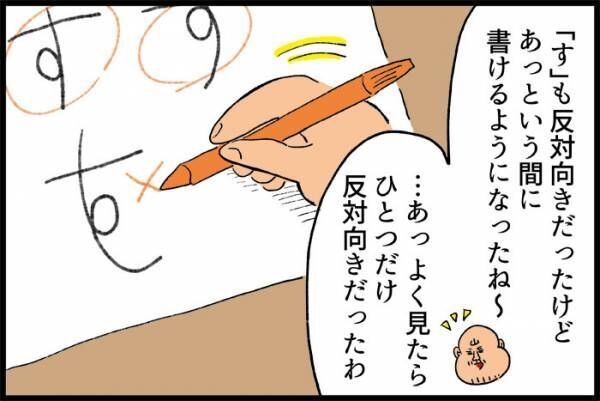 「す」も反対向きだったけど
あっという間に
書けるようになったね〜
…あっよく見たら
ひとつだけ
反対向きだったわ
すす
す